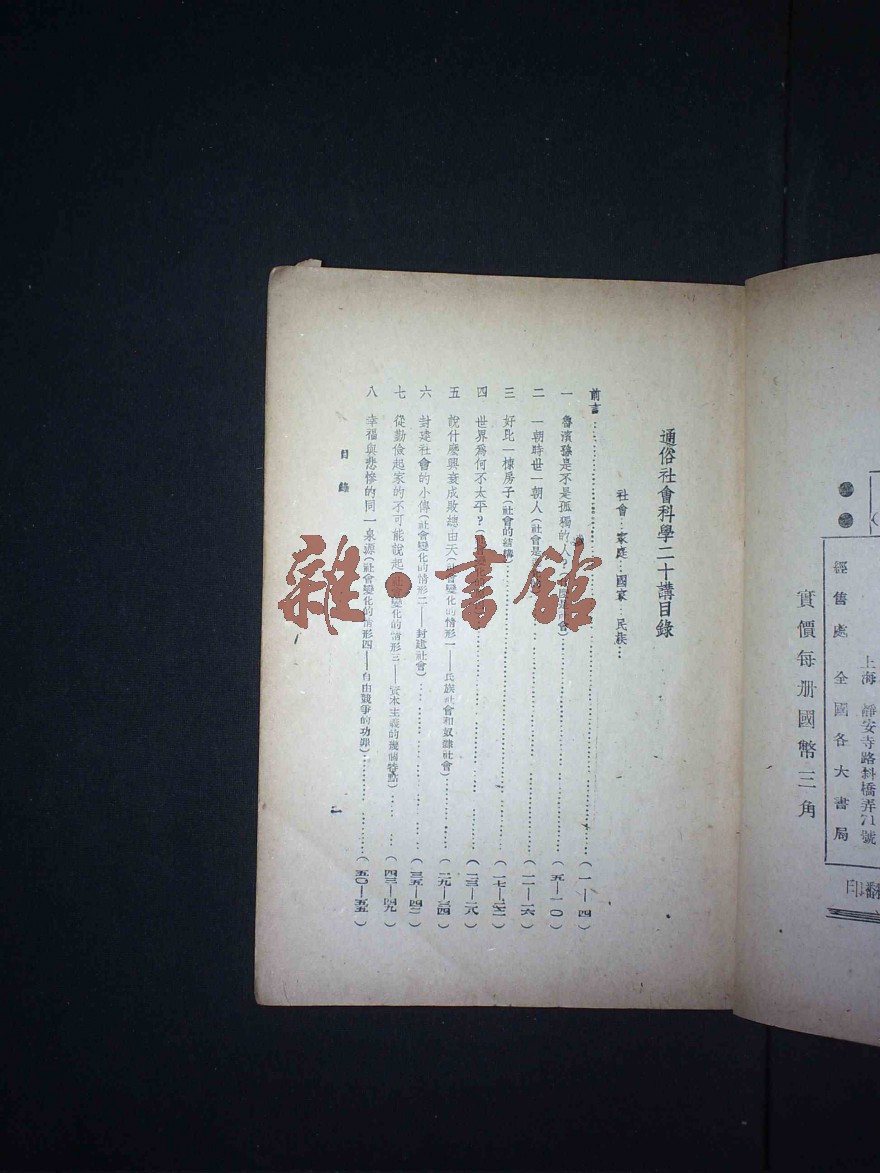 實價每册國幣三角
經售處 全國各大書局
上海 靜安寺路斜橋弄71號
印翻
通俗社會科學二十講目錄
社會…家庭…國家…民族…
前言……(一—四)
一 魯濱孫是不是孤獨的人?……(五—一〇)
二 一朝時世一朝人(社會是……(一一—一六)
三 好比一棟房子(社會的結構)……(一七—二二)
四 世界爲何不太平?……(二三—二八)
五 說什麼興衰成敗總由天(社會變化的情形一——氏族社會和奴隸社會)……(二九—三四)
六 封建社會的小傳(社會變化的情形二——封建社會)……(三五—四二)
七 從勤儉起家的不可能說起(社會變化的情形三——資本主義的幾個特點)……(四三—四九)
八 幸福與悲慘的同一泉源(社會變化的情形四——自由競爭的功罪)……(五〇—五五)
目錄 一
雜·書館